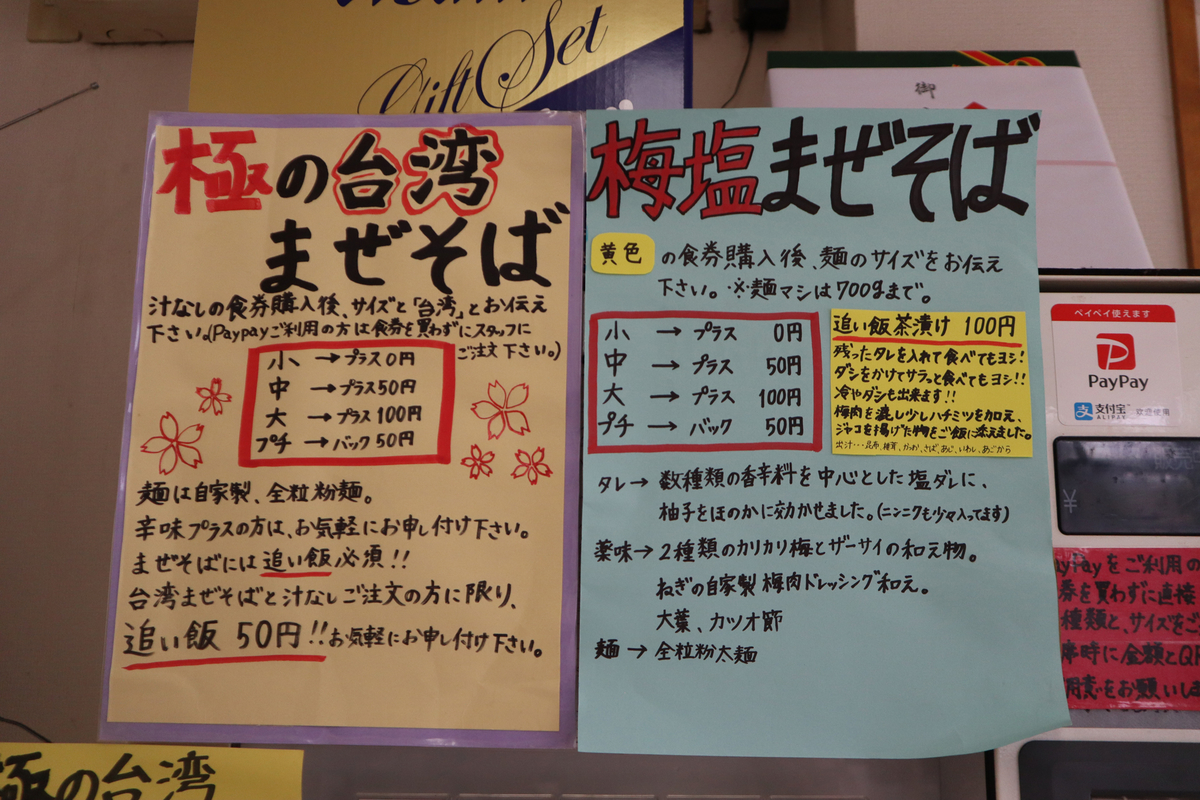 Gift Set
御
極の台湾
まぜそば
汁なしの食券購入後、サイズと「台湾」とお伝え
下さい。(Paypayご利用の方は食券を買わずにスタッフに
ご注文下さい。)
小 → プラス 0円
中 → プラス 50円
大 → プラス 100円
プチ → バック 50円
麺は自家製、全粒粉麺。
辛味プラスの方は、お気軽にお申し付け下さい。
まぜそばには追い飯必須!!
台湾まぜそばと汁なしご注文の方に限り、
追い飯 50円!!お気軽にお申し付け下さい。
梅塩まぜそば
黄色の食券購入後、麺のサイズをお伝え
下さい。※麺マシは700gまで。
小 → プラス 0円
中 → プラス 50円
大 → プラス 100円
プチ → バック 50円
追い飯茶漬け 100円
残ったタレを入れて食べてもヨシ!
ダシをかけてサラっと食べてもヨシ!!
冷やダシも出来ます!!
梅肉を漉し少しハチミツを加え、
ジャコを揚げた物をご飯に添えました。
出汁…昆布、椎茸、かつお、さば、あじ、いわし、あごから
タレ→ 数種類の香辛料を中心とした塩ダレに、
柚子をほのかに効かせました。(ニンニクも少々入ってます)
薬味→ 2種類のカリカリ梅とザーサイの和え物。
ねぎの自家製梅肉ドレッシング和え。
大葉、カツオ節
麺 → 全粒粉太麺
ペイペイ使えます
PayPay
支付宝
ALIPAY
欢迎使用
¥
PayPayをご利用の
券を買わずに直接
種類と、サイズをご
時に金額とQR
用意をお願いしま
極の台湾